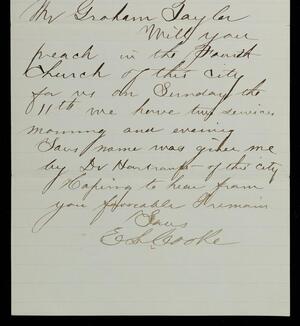 Mr Graham Taylor
Will you
preach in the Fourth
Church of this City
for us on Sunday the
11th we have two services
morning and evening
Your name was given me
by Dr Hartranft of this city
Hoping to hear from
you favorable I remain
Yours
E S Cooke